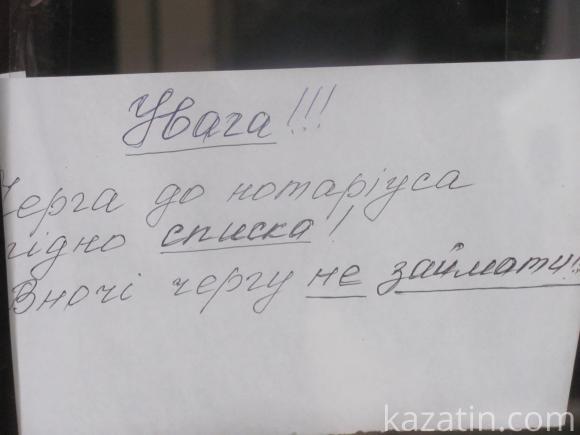 Увага!!!
Черга до нотаріуса
гідно списка!
Вночі чергу не займати!!
kazatin.com